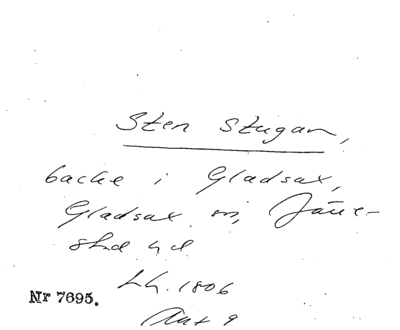 Sten stugan,
backe i Gladsax,
Gladsax sn, Järre-
stad hd.
Lh. 1806
Nr 7695.